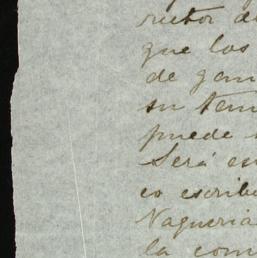 rector de
que los
de gan
su tem
puede
Será es
co escribe
Vaqueria
la com